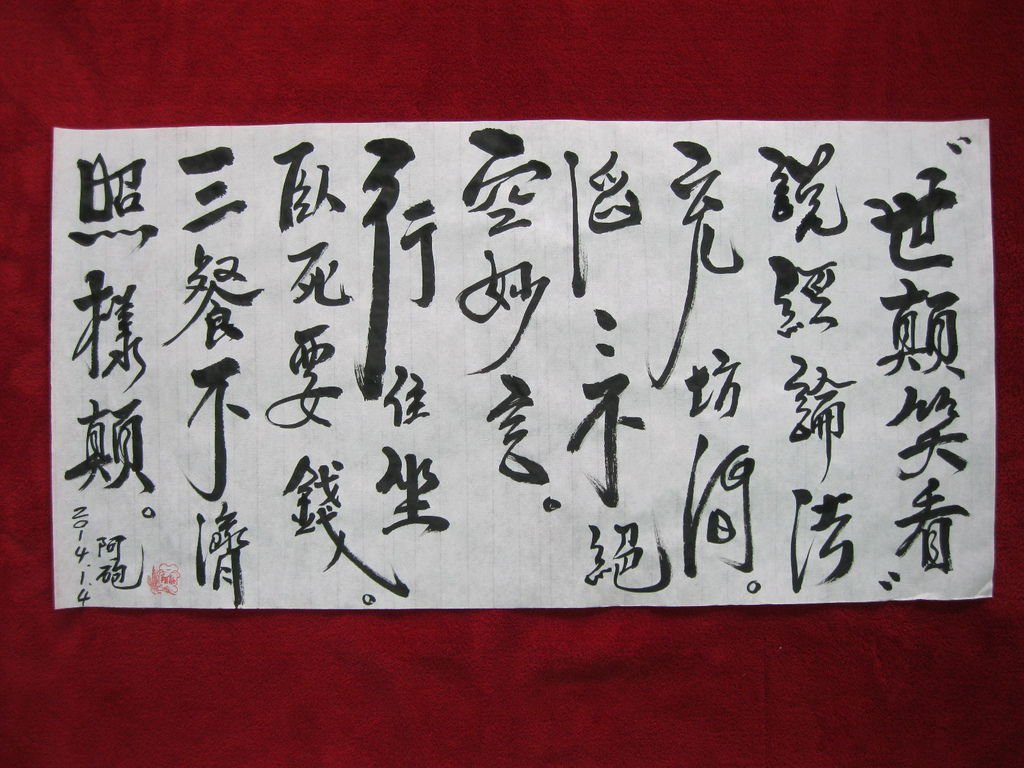 "世顛笑看"
說經論法
充坊間。
滔〻不絕
空妙玄。
行住坐
臥死要錢。
三餐不濟
照樣顛。
阿砲
2014.1.4